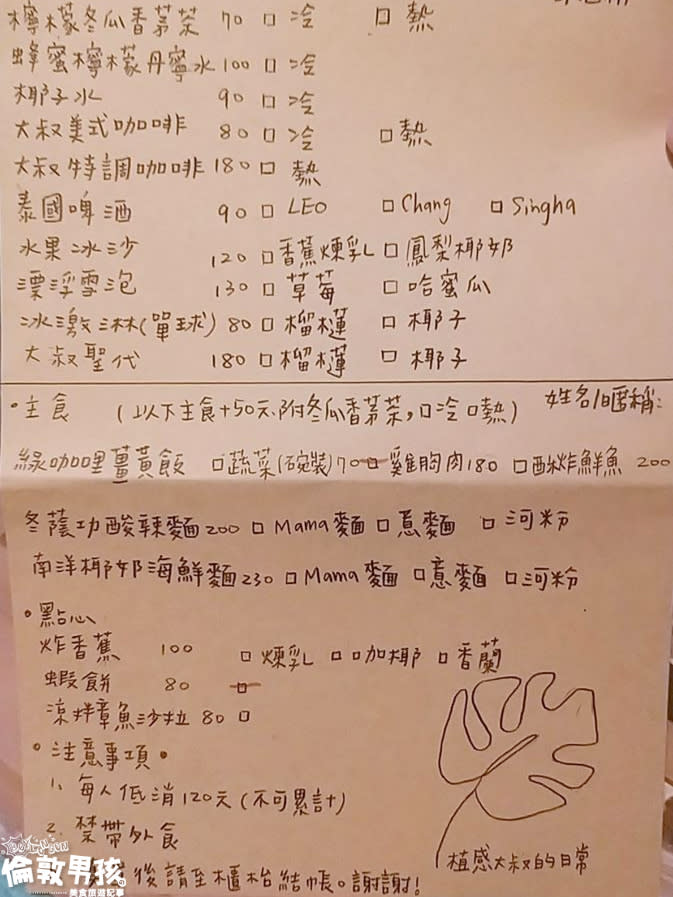 檸檬冬瓜香茅茶 70 □ 冷 □ 熱
蜂蜜檸檬丹寧水 100 □ 冷
椰子水 90 □ 冷
大叔美式咖啡 80 □ 冷 □ 熱
大叔特調咖啡 180 □ 熱
泰國啤酒 90 □ LEO □ Chang □ Singha
水果冰沙 120 □ 香蕉煉乳 □ 鳳梨椰奶
漂浮雪泡 130 □ 草莓 □ 哈蜜瓜
冰激淋(單球) 80 □ 榴槤 □ 椰子
大叔聖代 180 □ 榴槤 □ 椰子
•主食 (以下主食+50元.附冬瓜香茅茶,□冷□熱) 姓名/暱稱:
綠咖哩薑黃飯 □蔬菜(碗裝)70 □雞胸肉180 □酥炸鮮魚 200
冬蔭功酸辣麵200 □ Mama麵 □意麵 □河粉
南洋椰奶海鮮麵230 □ Mama麵 □意麵 □河粉
•點心
炸香蕉 100 □煉乳 □咖椰 □香蘭
蝦餅 80 □
涼拌章魚沙拉 80 □
•注意事項•
1. 每人低消120元(不可累計)
2. 禁帶外食
後請至櫃枱結帳。謝謝!
植感大叔的日常
倫敦男孩
美食旅遊記事